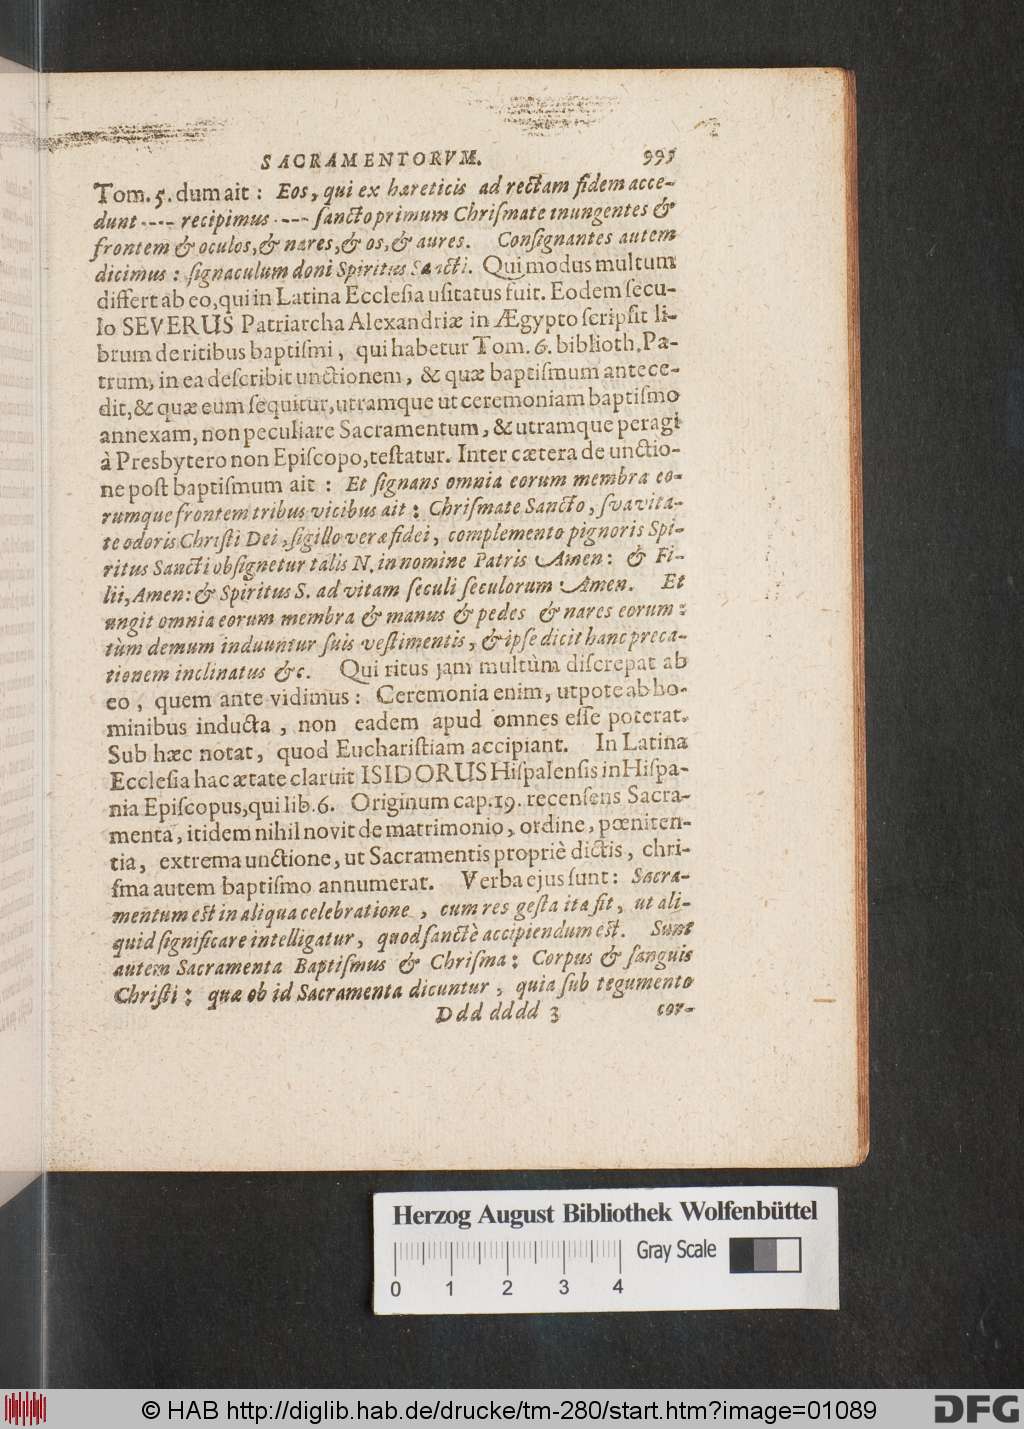 SACRAMENTORVM. 995
Tom. 5. dum ait : Eos, qui ex hæreticis ad rectam fidem acce-
dunt ---- recipimus ---- ſancto primum Chriſmate inungentes &
frontem & oculos, & nares, & os, & aures. Conſignantes autem
dicimus : ſignaculum doni Spiritus Sancti. Qui modus multum
differt ab eo, qui in Latina Eccleſia uſitatus fuit. Eodem ſecu-
lo SEVERUS Patriarcha Alexandriæ in Ægypto ſcripſit li-
brum de ritibus baptiſmi, qui habetur Tom. 6. biblioth. Pa-
trum, in ea deſcribit unctionem, & quæ baptiſmum antece-
dit, & quæ eum ſequitur, utramque ut ceremoniam baptiſmo
annexam, non peculiare Sacramentum, & utramque peragi
à Presbytero non Epiſcopo, teſtatur. Inter cætera de unctio-
ne poſt baptiſmum ait : Et ſignans omnia eorum membra eo-
rumque frontem tribus vicibus ait : Chriſmate Sancto, ſvavita-
te odoris Chriſti Dei, ſigillo veræ fidei, complemento pignoris Spi-
ritus Sancti obſignetur talis N. in nomine Patris Amen : & Fi-
lii, Amen : & Spiritus S. ad vitam ſeculi ſeculorum Amen. Et
ungit omnia eorum membra & manus & pedes & nares eorum :
tùm demum induuntur ſuis veſtimentis, & ipſe dicit hanc preca-
tionem inclinatus &c. Qui ritus jam multùm diſcrepat ab
eo, quem ante vidimus : Ceremonia enim, utpote ab ho-
minibus inducta, non eadem apud omnes eſſe poterat.
Sub hæc notat, quod Euchariſtiam accipiant. In Latina
Eccleſia hac ætate claruit ISIDORUS Hiſpalenſis in Hiſpa-
nia Epiſcopus, qui lib. 6. Originum cap. 19. recenſens Sacra-
menta, itidem nihil novit de matrimonio, ordine, pœniten-
tia, extrema unctione, ut Sacramentis propriè dictis, chri-
ſma autem baptiſmo annumerat. Verba ejus ſunt : Sacra-
mentum eſt in aliqua celebratione, cum res geſta ita fit, ut ali-
quid ſignificare intelligatur, quod ſanctè accipiendum eſt. Sunt
autem Sacramenta Baptiſmus & Chriſma : Corpus & ſanguis
Chriſti : quæ ob id Sacramenta dicuntur, quia ſub tegumento
Ddd dddd 3 cor-
Herzog August Bibliothek Wolfenbüttel
Gray Scale
0 1 2 3 4
© HAB http://diglib.hab.de/drucke/tm-280/start.htm?image=01089
DFG